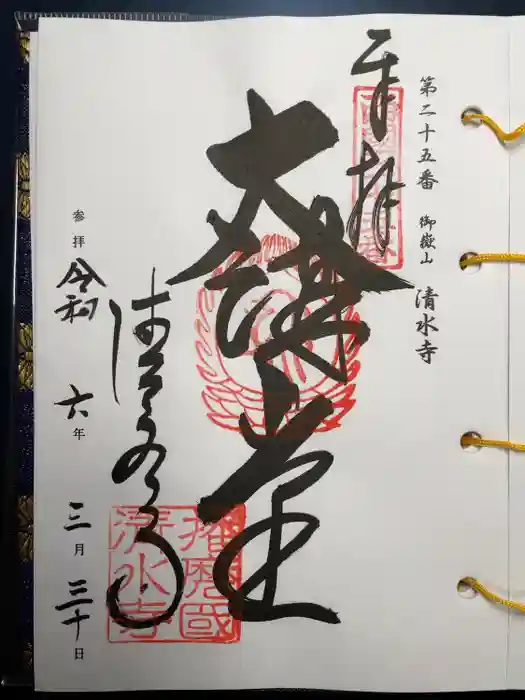 第二十五番 御嶽山 清水寺
奉拝
大講堂
清水寺
播磨國
清水寺
参拝 令和 六年 三月 三十日